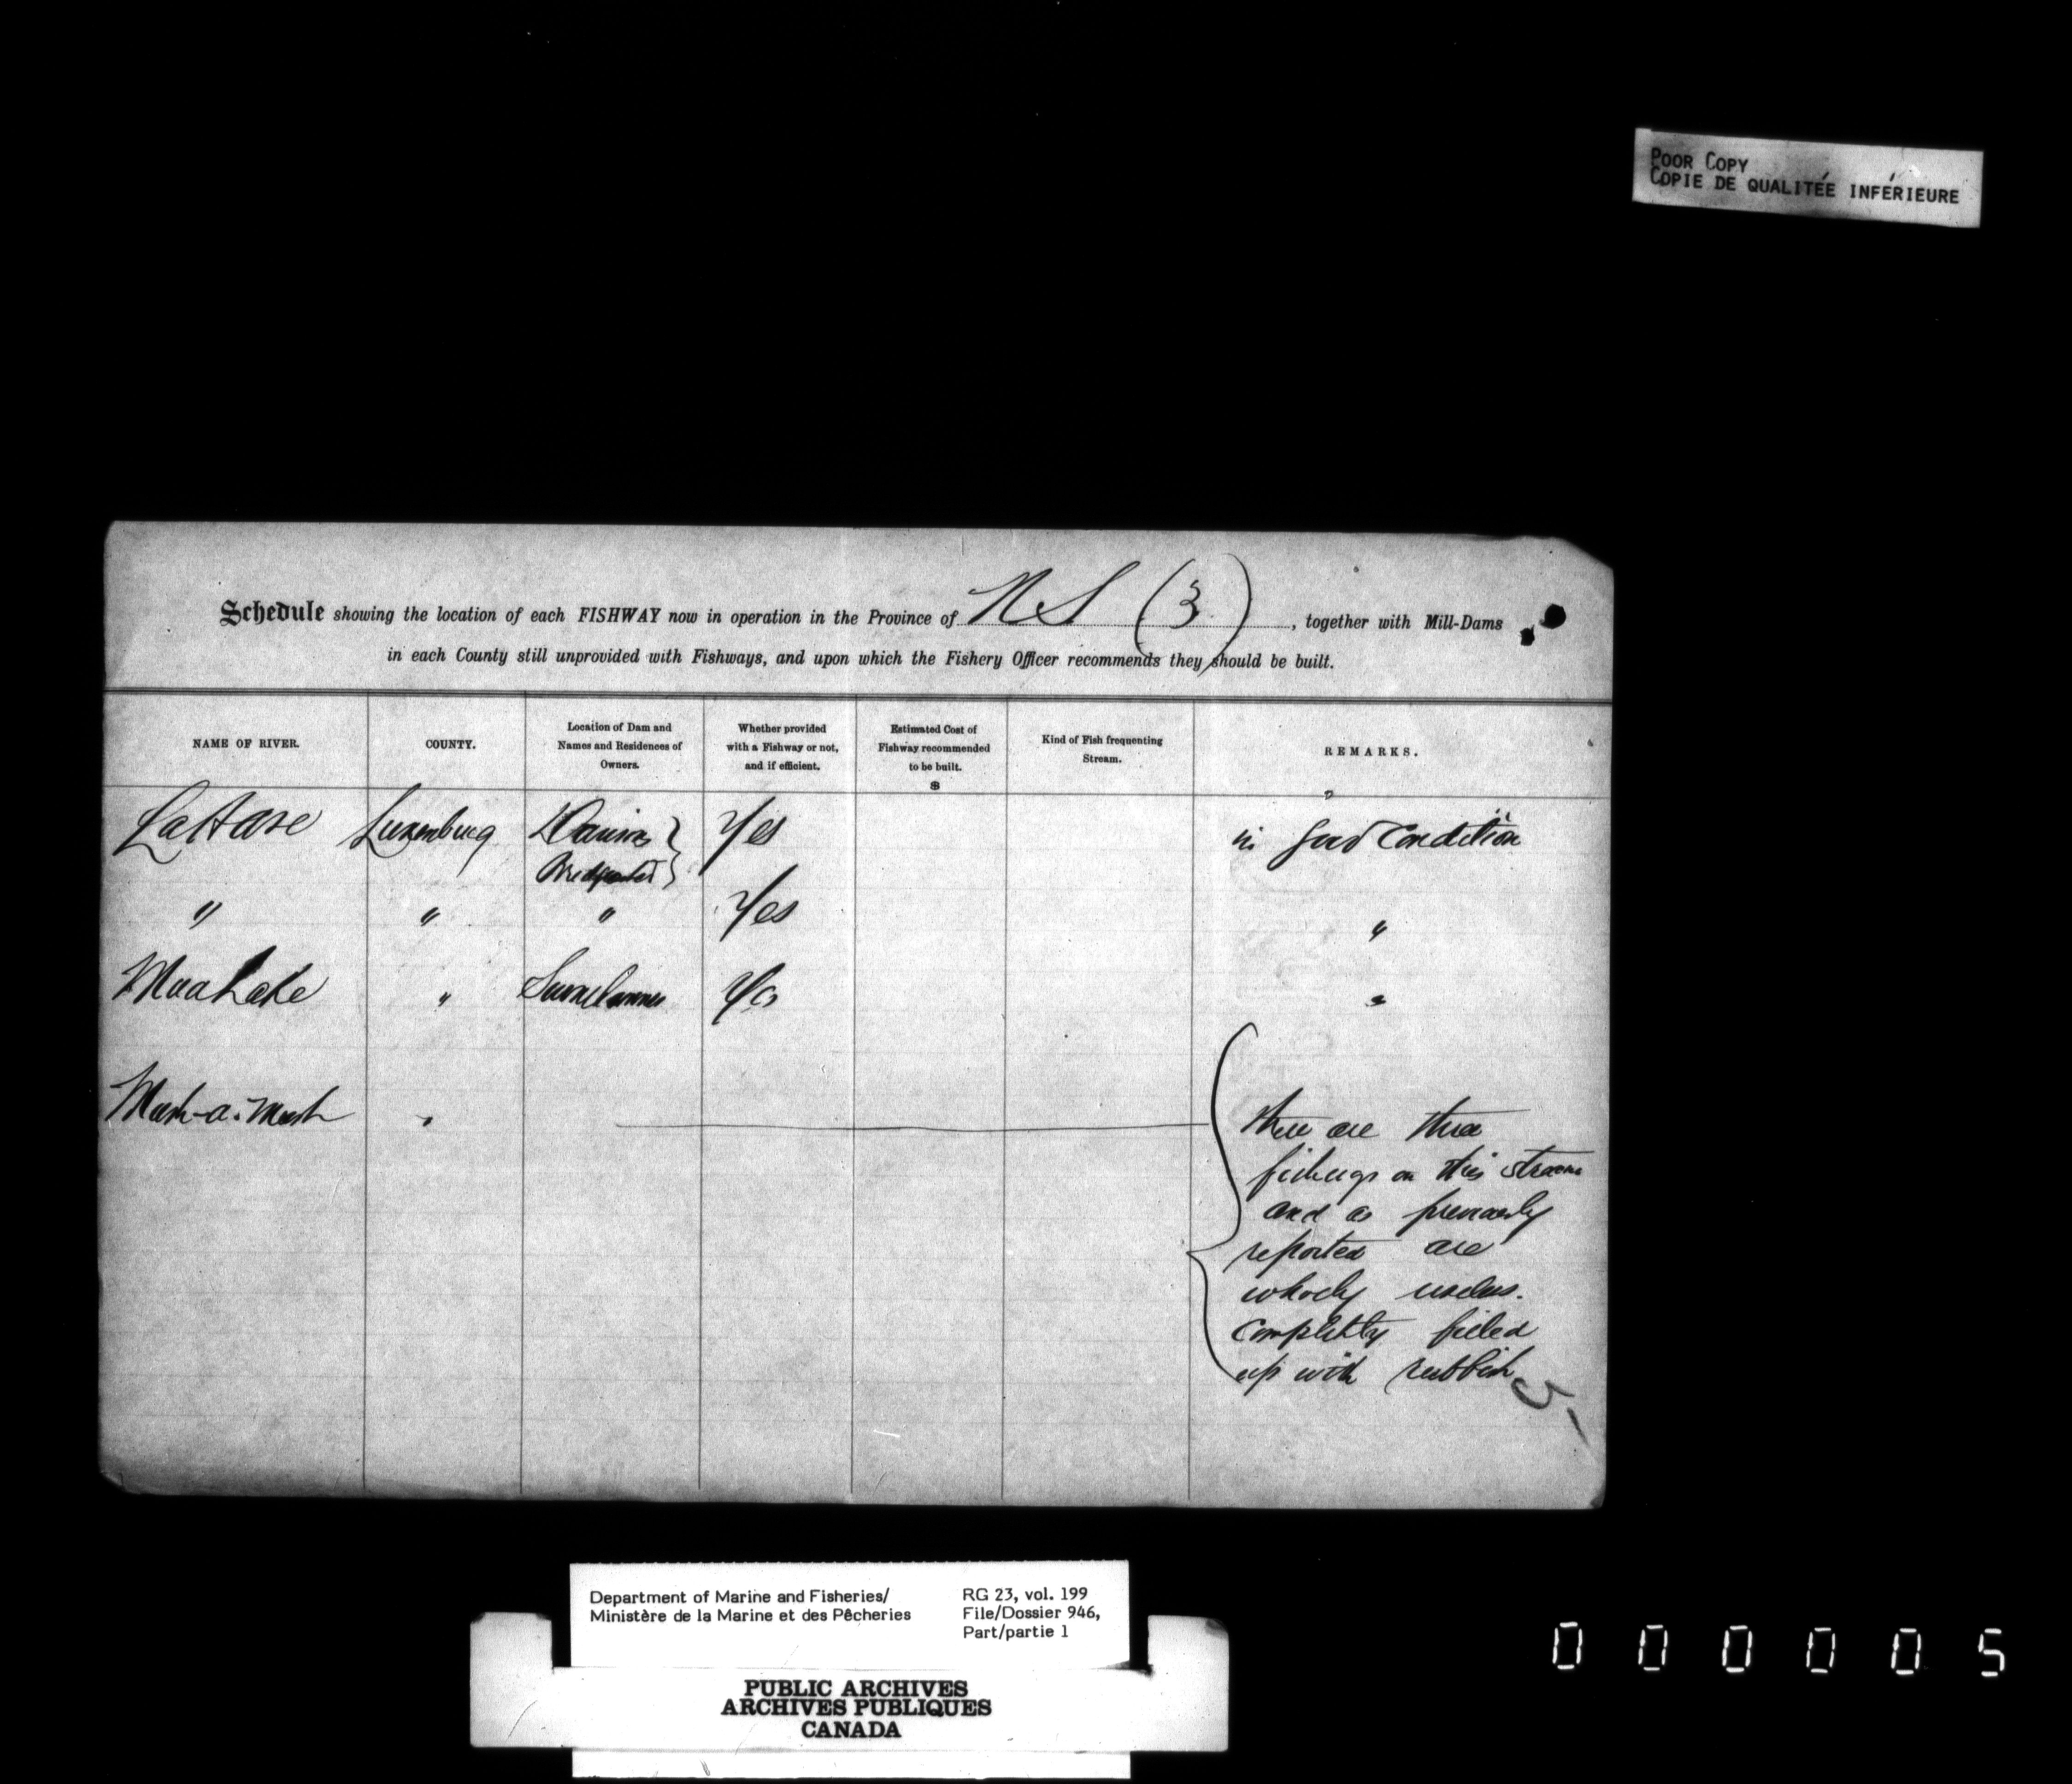 POOR COPY
COPIE DE QUALITÉE INFÉRIEURE
Schedule showing the location of each FISHWAY now in operation in the Province of NS (3), together with Mill-Dams
in each County still unprovided with Fishways, and upon which the Fishery Officer recommends they should be built.
NAME OF RIVER. COUNTY. Location of Dam and Names and Residences of Owners. Whether provided with a Fishway or not, and if efficient. Estimated Cost of Fishway recommended to be built. $ Kind of Fish frequenting Stream. REMARKS.
LaHave Lunenburg Davison Yes in good Condition
Bridgewater
" " " Yes "
Mush-a-Mush "
there are three
fishways on this stream
and as previously
reported are
wholy useless.
Completly filled
up with rubbish
5
Department of Marine and Fisheries/
Ministère de la Marine et des Pêcheries
RG 23, vol. 199
File/Dossier 946,
Part/partie 1
PUBLIC ARCHIVES
ARCHIVES PUBLIQUES
CANADA
000005